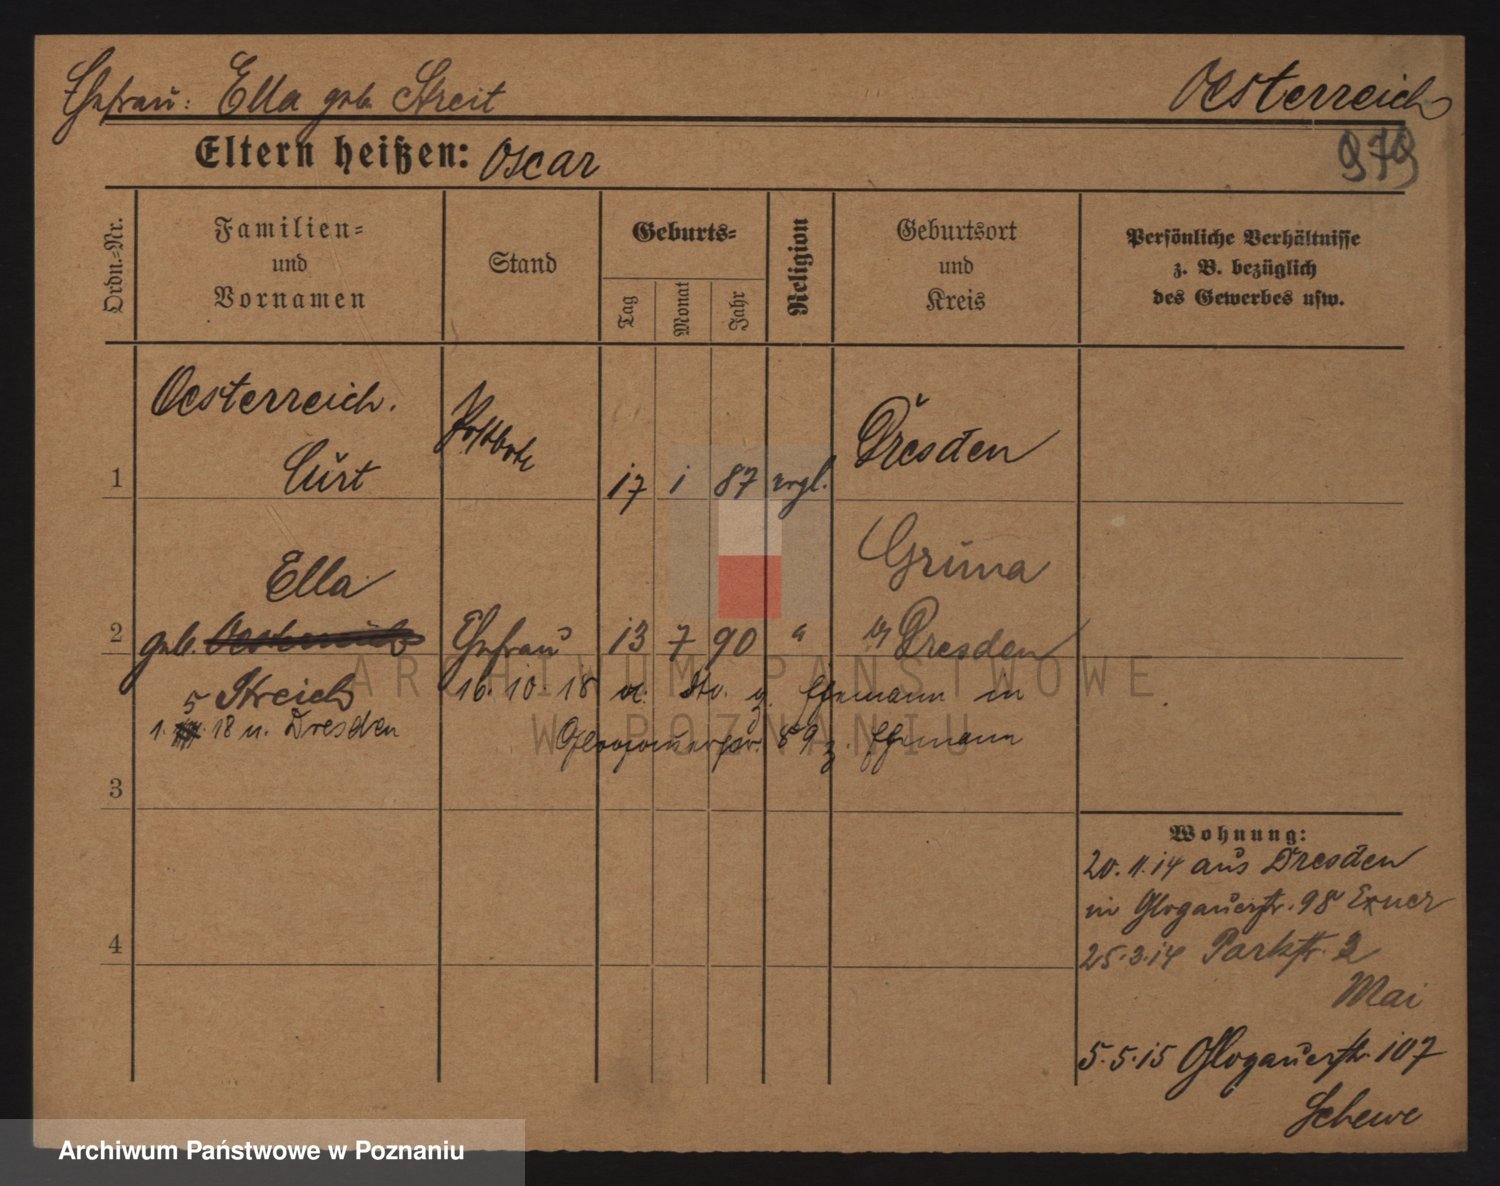 Ehefrau: Ella geb. Streit
Oesterreich
Eltern heißen: Oscar
979
Ordn.=Nr.
Familien=
und
Vornamen
Stand
Geburts=
Tag
Monat
Jahr
Religion
Geburtsort
und
Kreis
Persönliche Verhältnisse
z. B. bezüglich
des Gewerbes usw.
Oesterreich.
Curt
Postbote
1
17 1 87 evgl.
Dresden
Ella
Gruna
2
geb.
Ehefrau 13 7 90 "
Dresden
Streich
16. 10. 18
Ehemann in
18 n. Dresden
89 z. Ehemann
3
4
Wohnung:
20. 11. 14 aus Dresden
in Glogauerstr. 98 Exner
25. 3. 14 Parkstr. 2
Mai
5. 5. 15 Glogauerstr. 107
Schewe
ARCHIWUM PAŃSTWOWE
W POZNANIU
Archiwum Państwowe w Poznaniu